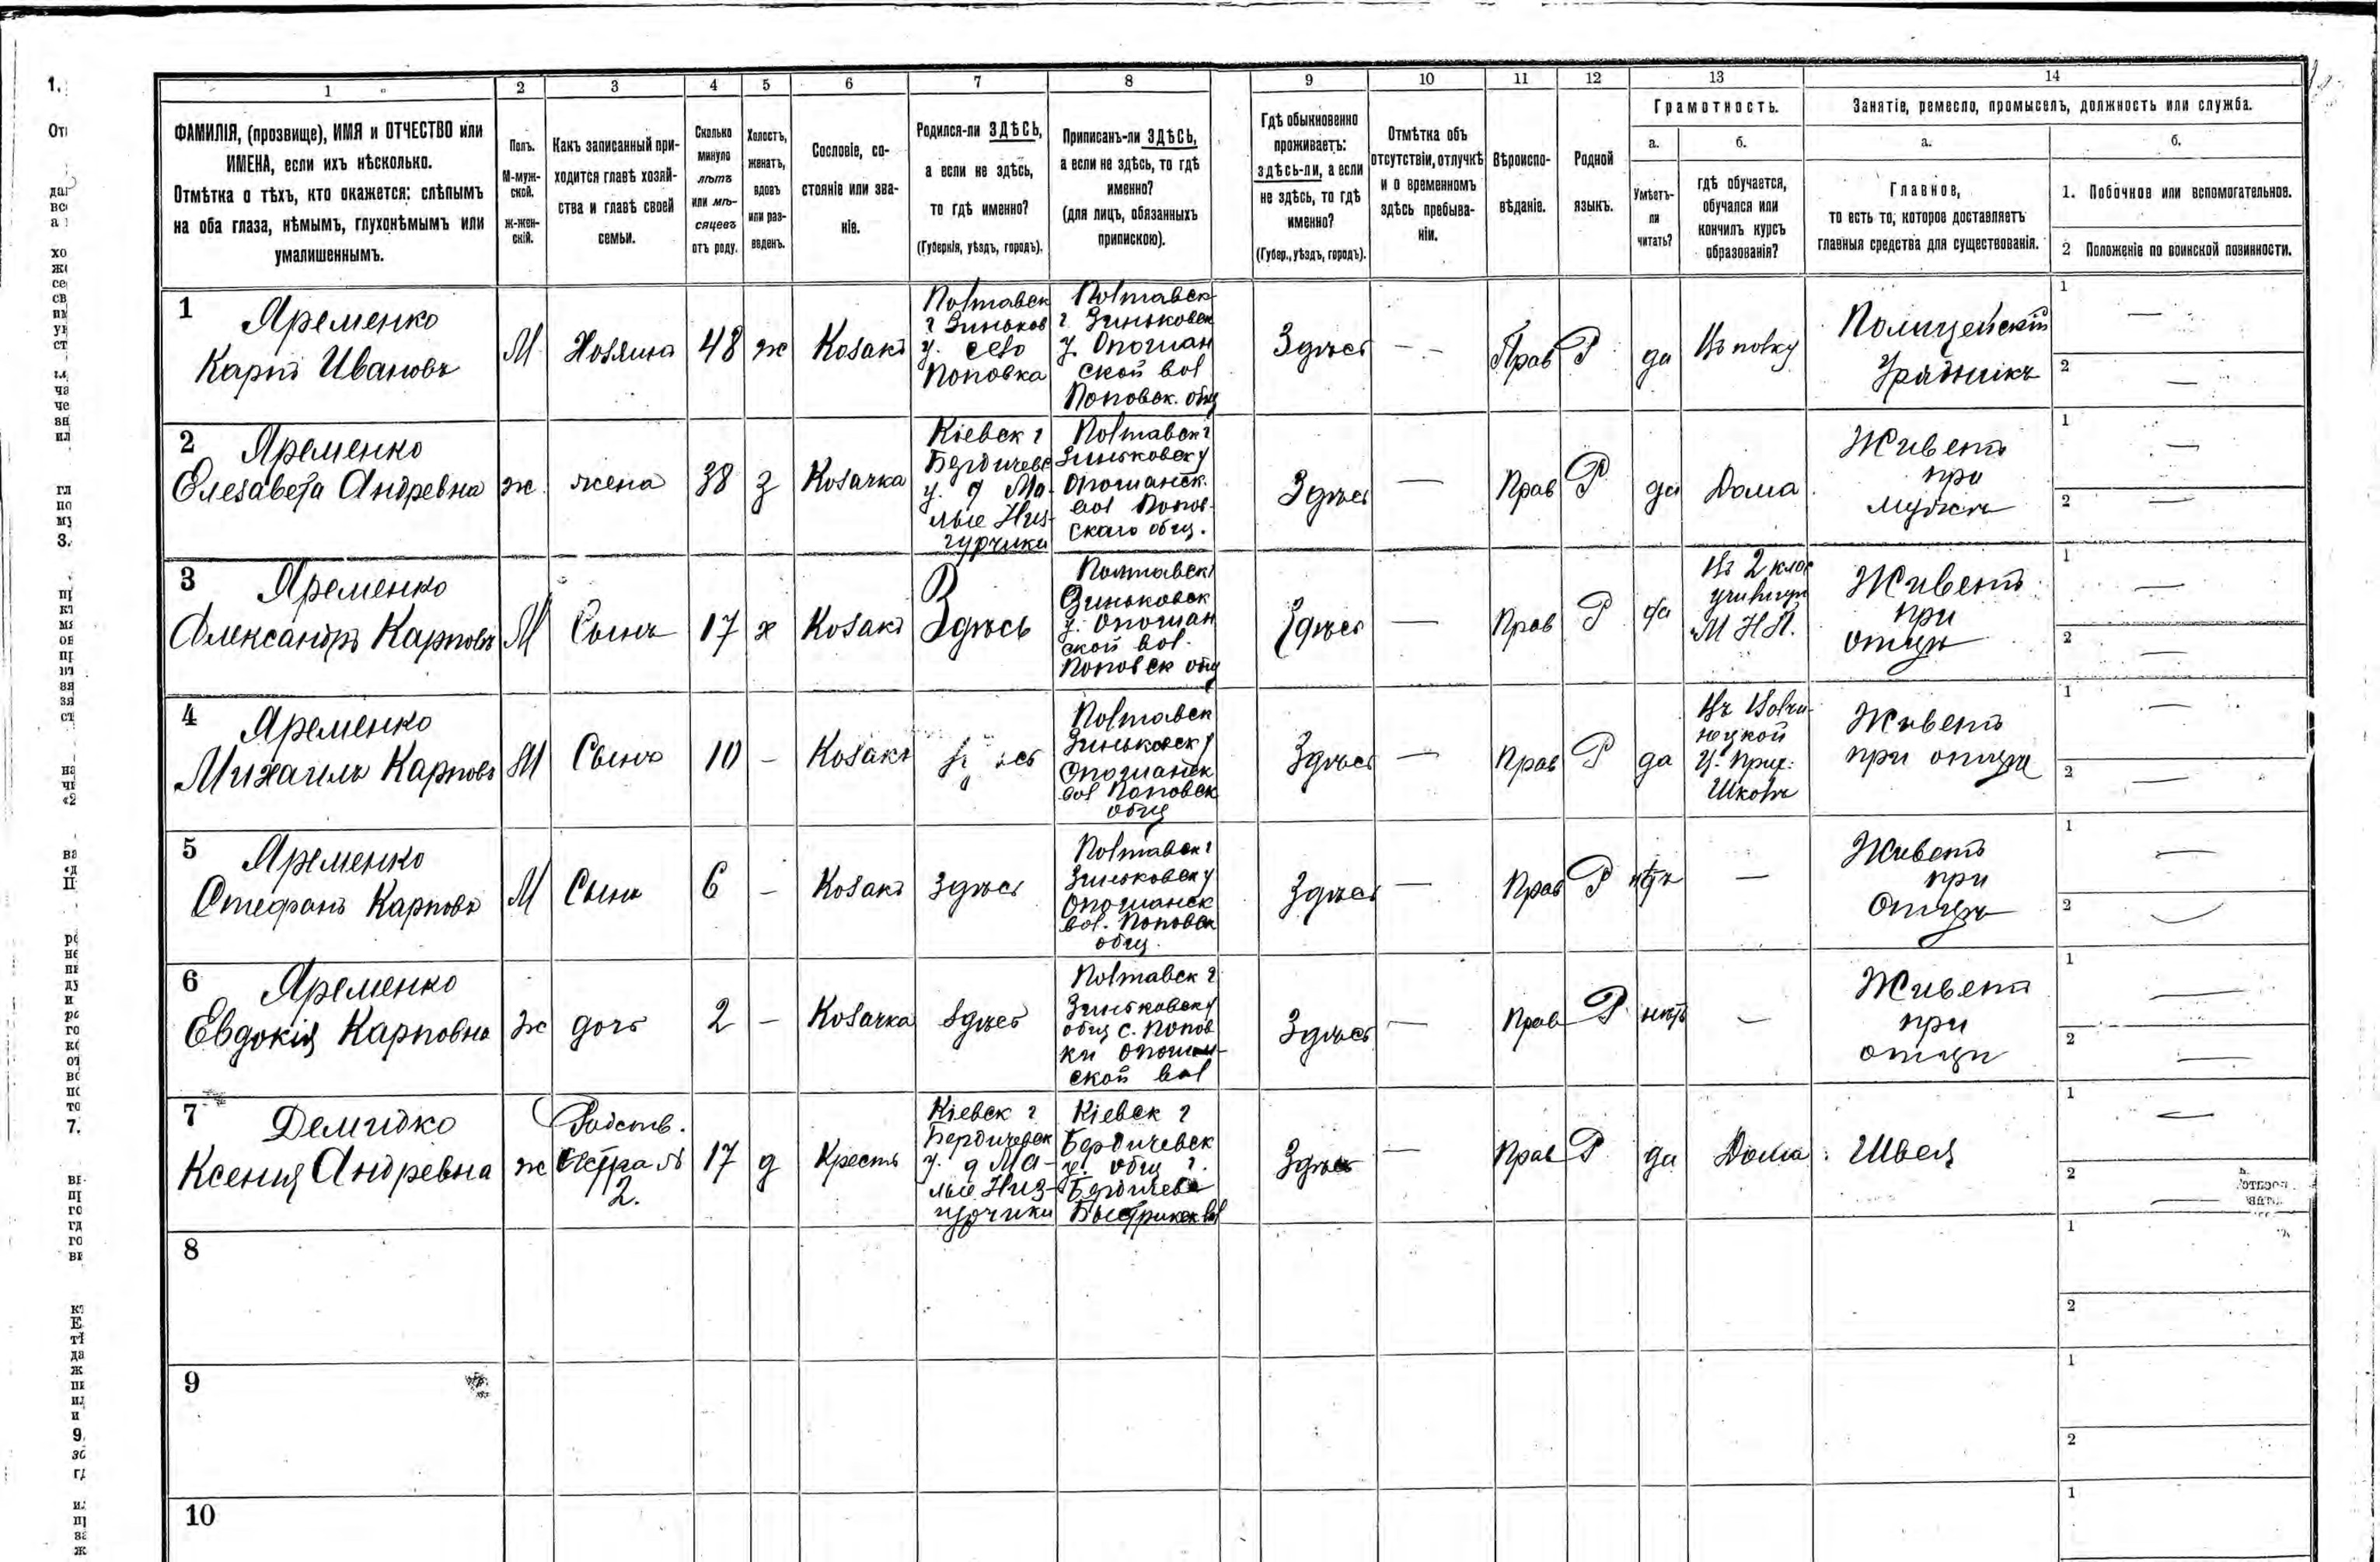 1 2 3 4 5 6 7 8 9 10 11 12 13 14
ФАМИЛІЯ, (прозвище), ИМЯ и ОТЧЕСТВО или
ИМЕНА, если ихъ нѣсколько.
Отмѣтка о тѣхъ, кто окажется: слѣпымъ
на оба глаза, нѣмымъ, глухонѣмымъ или
умалишеннымъ.
Полъ.
М-муж-
ской.
ж-жен-
скій.
Какъ записанный при-
ходится главѣ хозяй-
ства и главѣ своей
семьи.
Сколько
минуло
лѣтъ
или мѣ-
сяцевъ
отъ роду.
Холостъ,
женатъ,
вдовъ
или раз-
веденъ.
Сословіе, со-
стояніе или зва-
ніе.
Родился-ли ЗДѢСЬ,
а если не здѣсь,
то гдѣ именно?
(Губернія, уѣздъ, городъ).
Приписанъ-ли ЗДѢСЬ,
а если не здѣсь, то гдѣ
именно?
(для лицъ, обязанныхъ
припискою).
Гдѣ обыкновенно
проживаетъ:
здѣсь-ли, а если
не здѣсь, то гдѣ
именно?
(Губер., уѣздъ, городъ).
Отмѣтка объ
отсутствіи, отлучкѣ
и о временномъ
здѣсь пребыва-
ніи.
Вѣроиспо-
вѣданіе.
Родной
языкъ.
Грамотность.
а.
Умѣетъ-
ли
читать?
б.
гдѣ обучается,
обучался или
кончилъ курсъ
образованія?
Занятіе, ремесло, промыселъ, должность или служба.
а.
Главное,
то есть то, которое доставляетъ
главныя средства для существованія.
б.
1. Побочное или вспомогательное.
2 Положеніе по воинской повинности.
1
Яременко
Карпъ Ивановъ
М
Хозяинъ
48
ж
Козакъ
Полтавск
г Зиньков
у. село
Поповка
Полтавск
г. Зиньковск
у. Опошан
ской вол
Поповск. общ
Здѣсь
— -
Прав
Р
да
Полицейскій
Урядникъ
1 —
2 —
2
Яременко
Елезавета Андревна
ж
жена
38
з
Козачка
Кіевск г
Бердичевс
у. д Ма-
лые Низ-
гурчики
Полтавск г
Зиньковск у
Опошанск.
вол Попов-
скаго общ.
Здѣсь
—
Прав
Р
да
Дома
Живетъ
при
мужѣ
1 —
2 —
3
Яременко
Александръ Карповъ
М
Сынъ
17
х
Козакъ
Здѣсь
Полтавск
Зиньковск
у. Опошан
ской вол.
Поповск общ
Здѣсь
—
Прав
Р
да
Въ 2 клас
училищѣ
М Н П.
Живетъ
при
отцѣ
1 —
2 —
4
Яременко
Михаилъ Карповъ
М
Сынъ
10
-
Козакъ
Полтавск
Зиньковск у
Опошанск
вол Поповск
общ
Здѣсь
—
Прав
Р
да
Ц. Прих.
Школѣ
Живетъ
при отцѣ
1 —
2 —
5
Яременко
Стефанъ Карповъ
М
Сынъ
6
-
Козакъ
Здѣсь
Полтавск г
Зиньковск у
Опошанск
вол. Поповск
общ.
Здѣсь
—
Прав
Р
нѣтъ
—
Живетъ
при
Отцѣ
1 —
2 —
6
Яременко
Евдокія Карповна
ж
дочь
2
-
Козачка
Здѣсь
Полтавск г
Зиньковск у
общ с. Попов
ки Опошан-
ской вол
Здѣсь
—
Прав
Р
нѣтъ
—
Живетъ
при
отцѣ
1 —
2 —
7
Демидко
Ксенія Андревна
ж
Родств.
Сестра №
2.
17
д
Крестъ
Кіевск г
Бердичевск
у. д Ма-
лые Низ-
гурчики
Кіевск г
Бердичевск
у. общ г.
Бердичева
Быстрикск вол
Здѣсь
—
Прав
Р
да
Дома
Швея
1 —
2 —
8
1
2
9
1
2
10
1